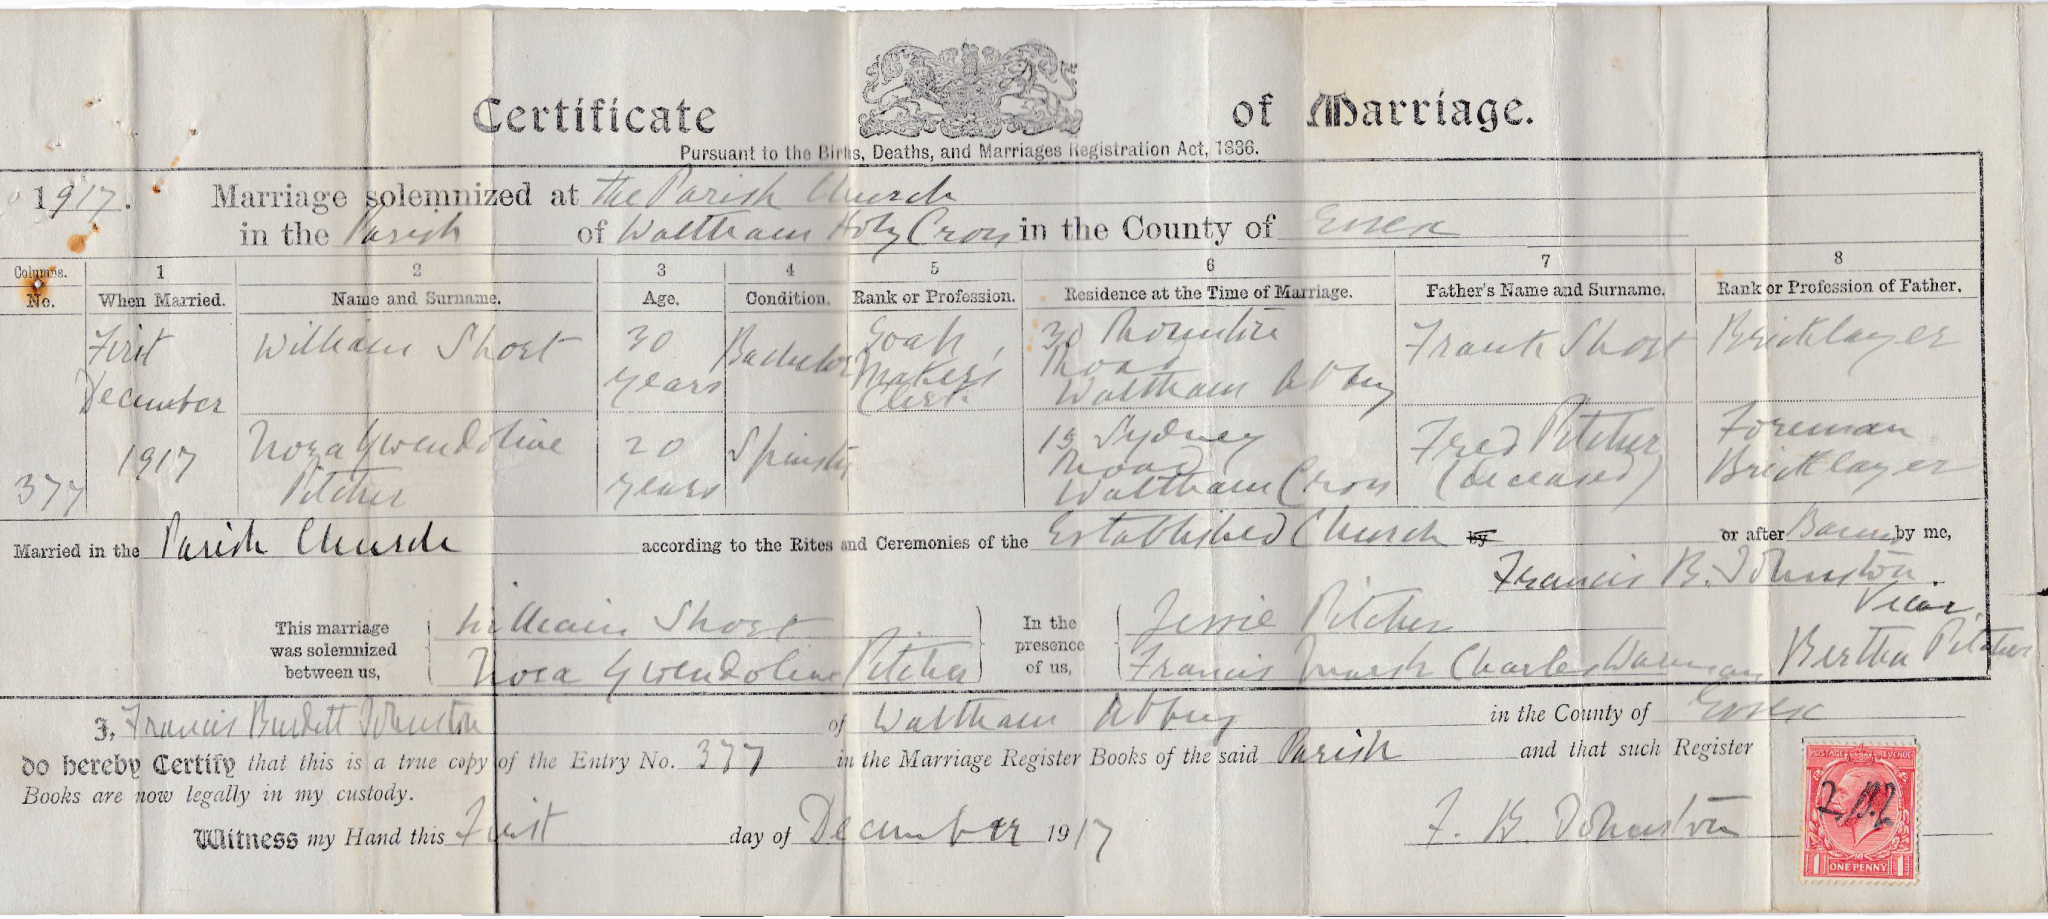 Certificate of Marriage.
Pursuant to the Births, Deaths, and Marriages Registration Act, 1836.
1917. Marriage solemnized at the Parish Church
in the Parish of Waltham Holy Cross in the County of Essex
Columns. 1 2 3 4 5 6 7 8
No. When Married. Name and Surname. Age. Condition. Rank or Profession. Residence at the Time of Marriage. Father's Name and Surname. Rank or Profession of Father.
First William Short 30 Bachelor Soap 30 Frank Short Bricklayer
years Makers Road
December Clerk Waltham Abbey
Nora Gwendoline 20 Spinster 15 Sydney Fred Pitcher Foreman
1917 Road
377 Pitcher years Waltham Cross (deceased) Bricklayer
Married in the Parish Church according to the Rites and Ceremonies of the Established Church by or after Banns by me,
Francis B. Johnston.
Vicar.
This marriage was solemnized between us,
William Short
Nora Gwendoline Pitcher
In the presence of us,
Jessie Pitcher
Francis Charles Bertha Pitcher
I, Francis Burdett Johnston of Waltham Abbey in the County of Essex
do hereby Certify that this is a true copy of the Entry No. 377 in the Marriage Register Books of the said Parish and that such Register
Books are now legally in my custody.
Witness my Hand this First day of December 1917 F. B. Johnston
POSTAGE REVENUE
F.B.J.
1 ONE PENNY 1